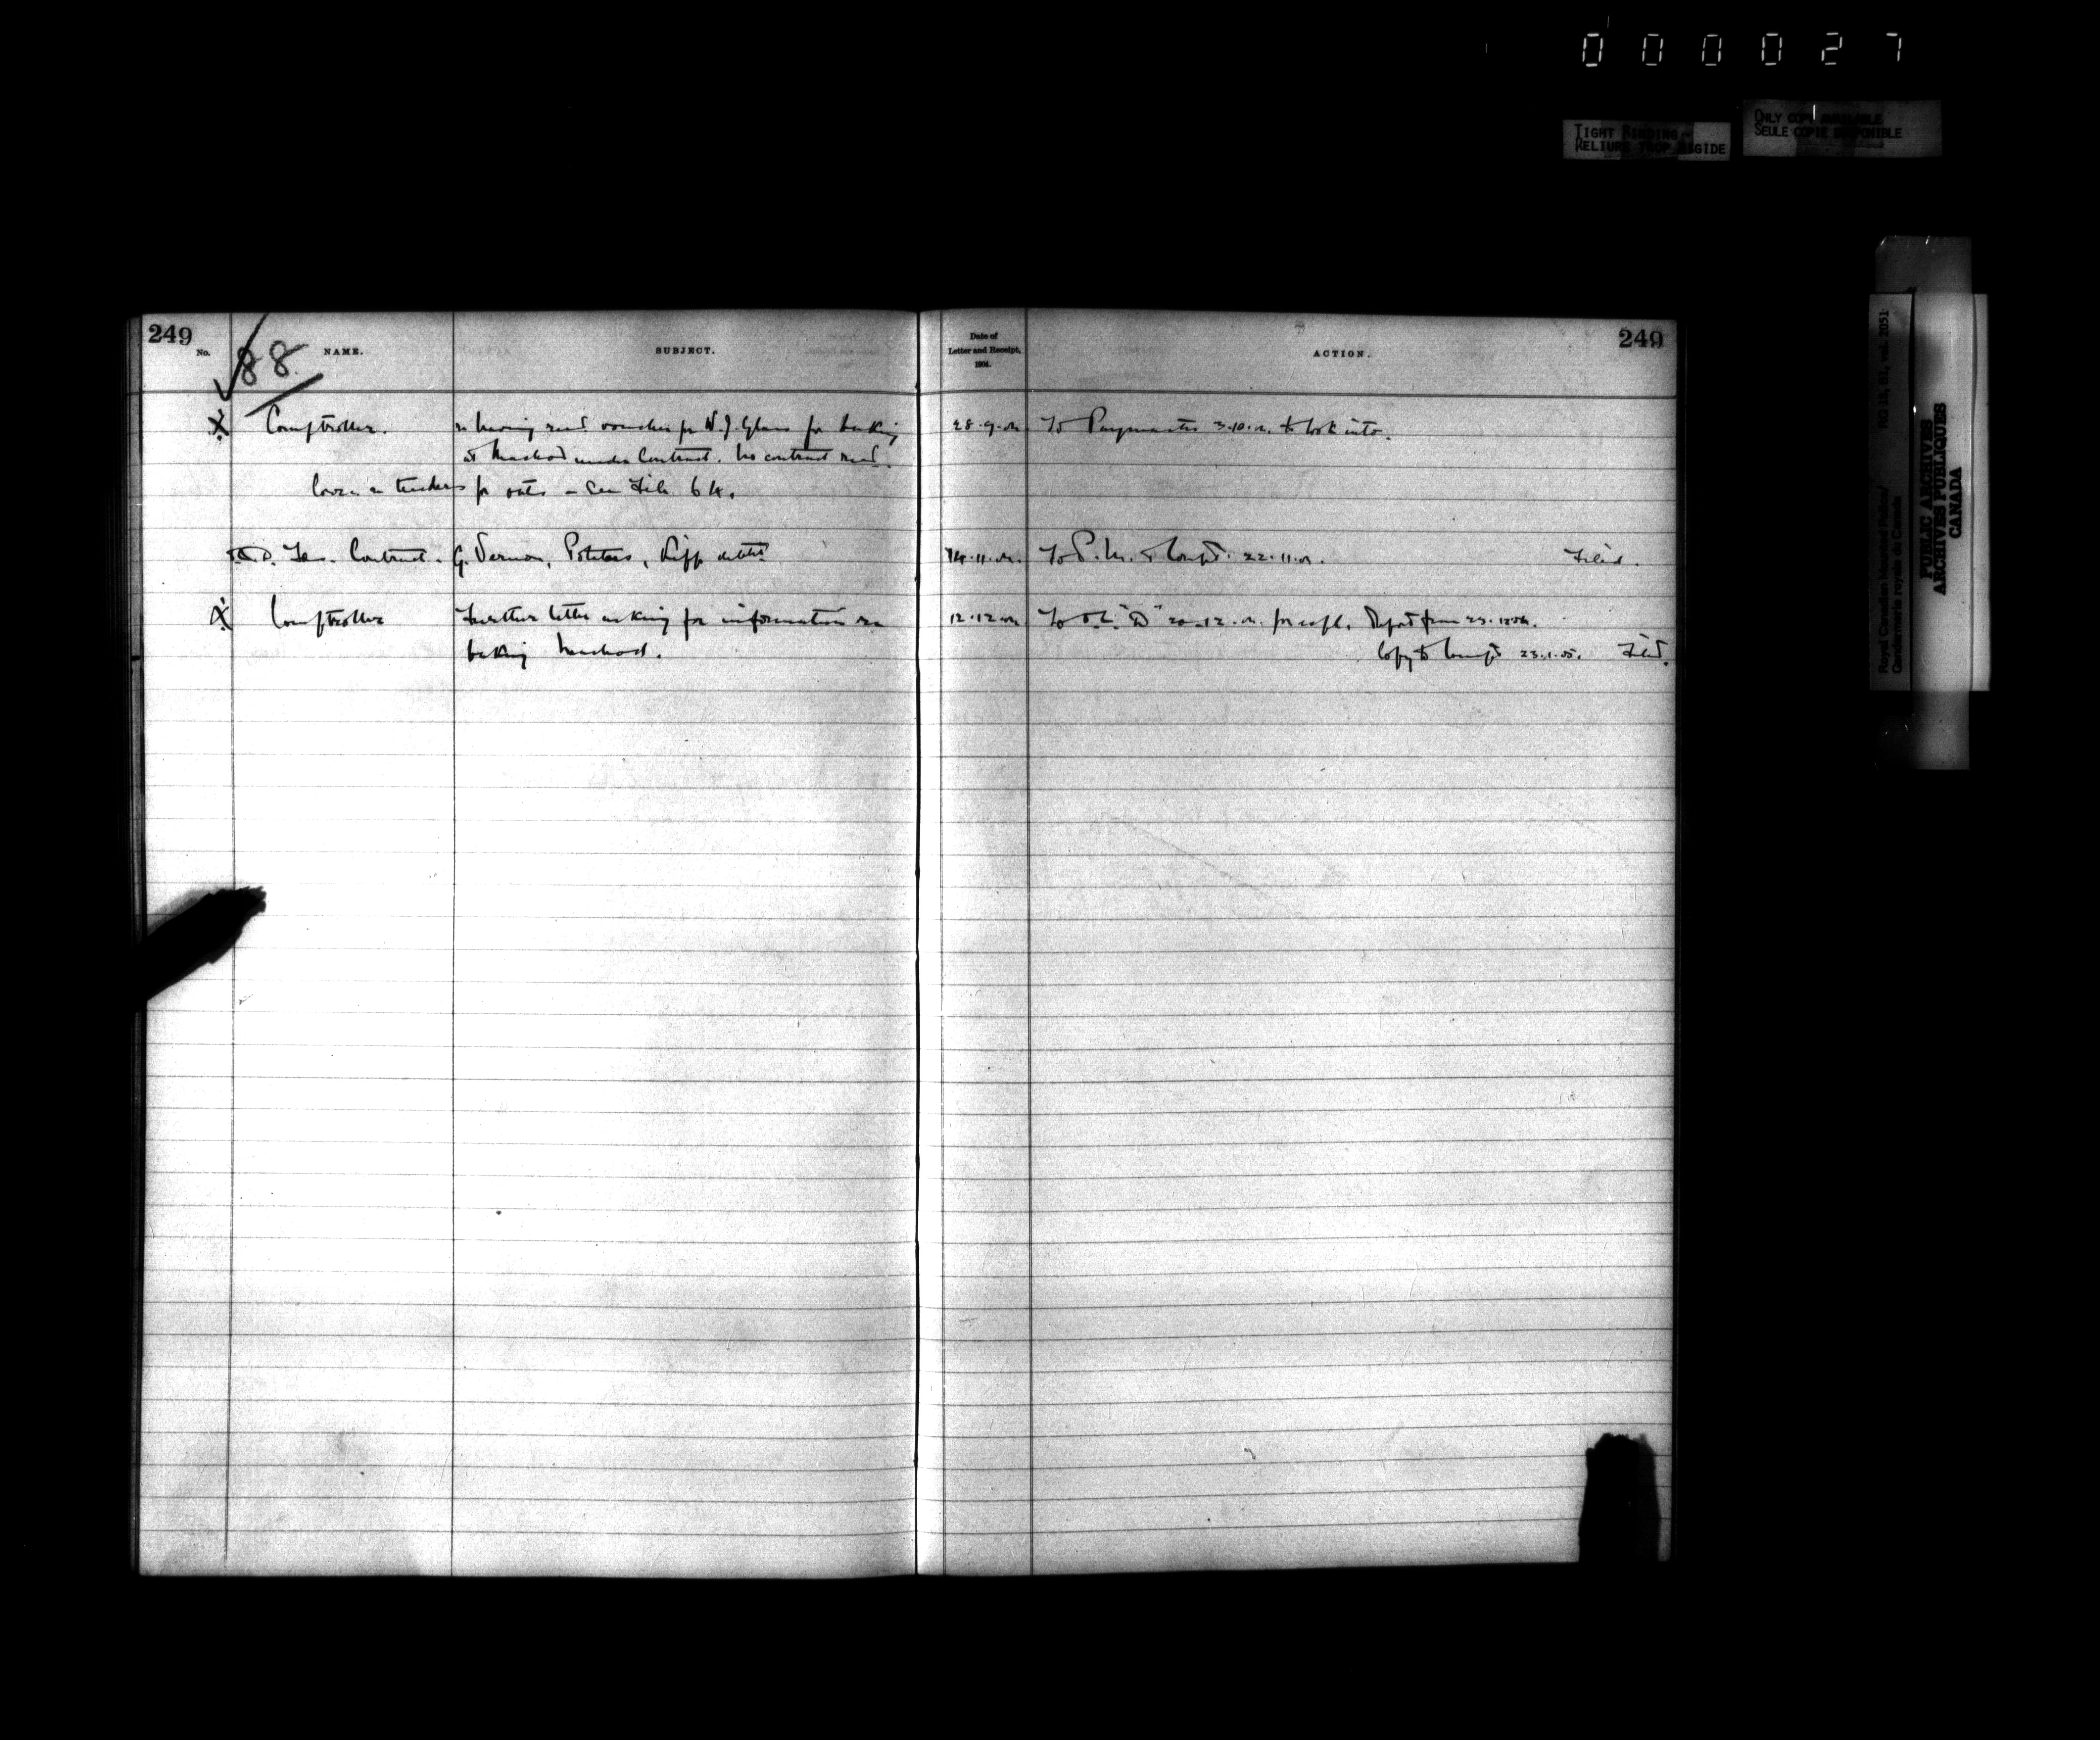 000027
TIGHT BINDING
RELIURE TROP RIGIDE
ONLY COPY AVAILABLE
SEULE COPIE DISPONIBLE
Royal Canadian Mounted Police/
Gendarmerie royale du Canada
RG 18, B1, vol. 2051
PUBLIC ARCHIVES
ARCHIVES PUBLIQUES
CANADA
249
No.
88.
NAME.
SUBJECT.
Date of
Letter and Receipt,
1904.
ACTION.
249
X Comptroller. re having recd. voucher for W. J. Glass for baking 28.9.04 To Paymaster 3.10.04 to look into.
at Macleod under Contract. No contract recd.
Corrs. re tenders for oats - See File 64.
Contract. G. Vernon, Potatoes, 14.11.04. To P.M. & Compt. 22.11.04. Filed.
X Comptroller Further letter asking for information re 12.12.04 To O.C. "D" 20.12.04 for expl. Report from 29.12.04.
baking Macleod. Copy to Compt. 23.1.05. Filed.